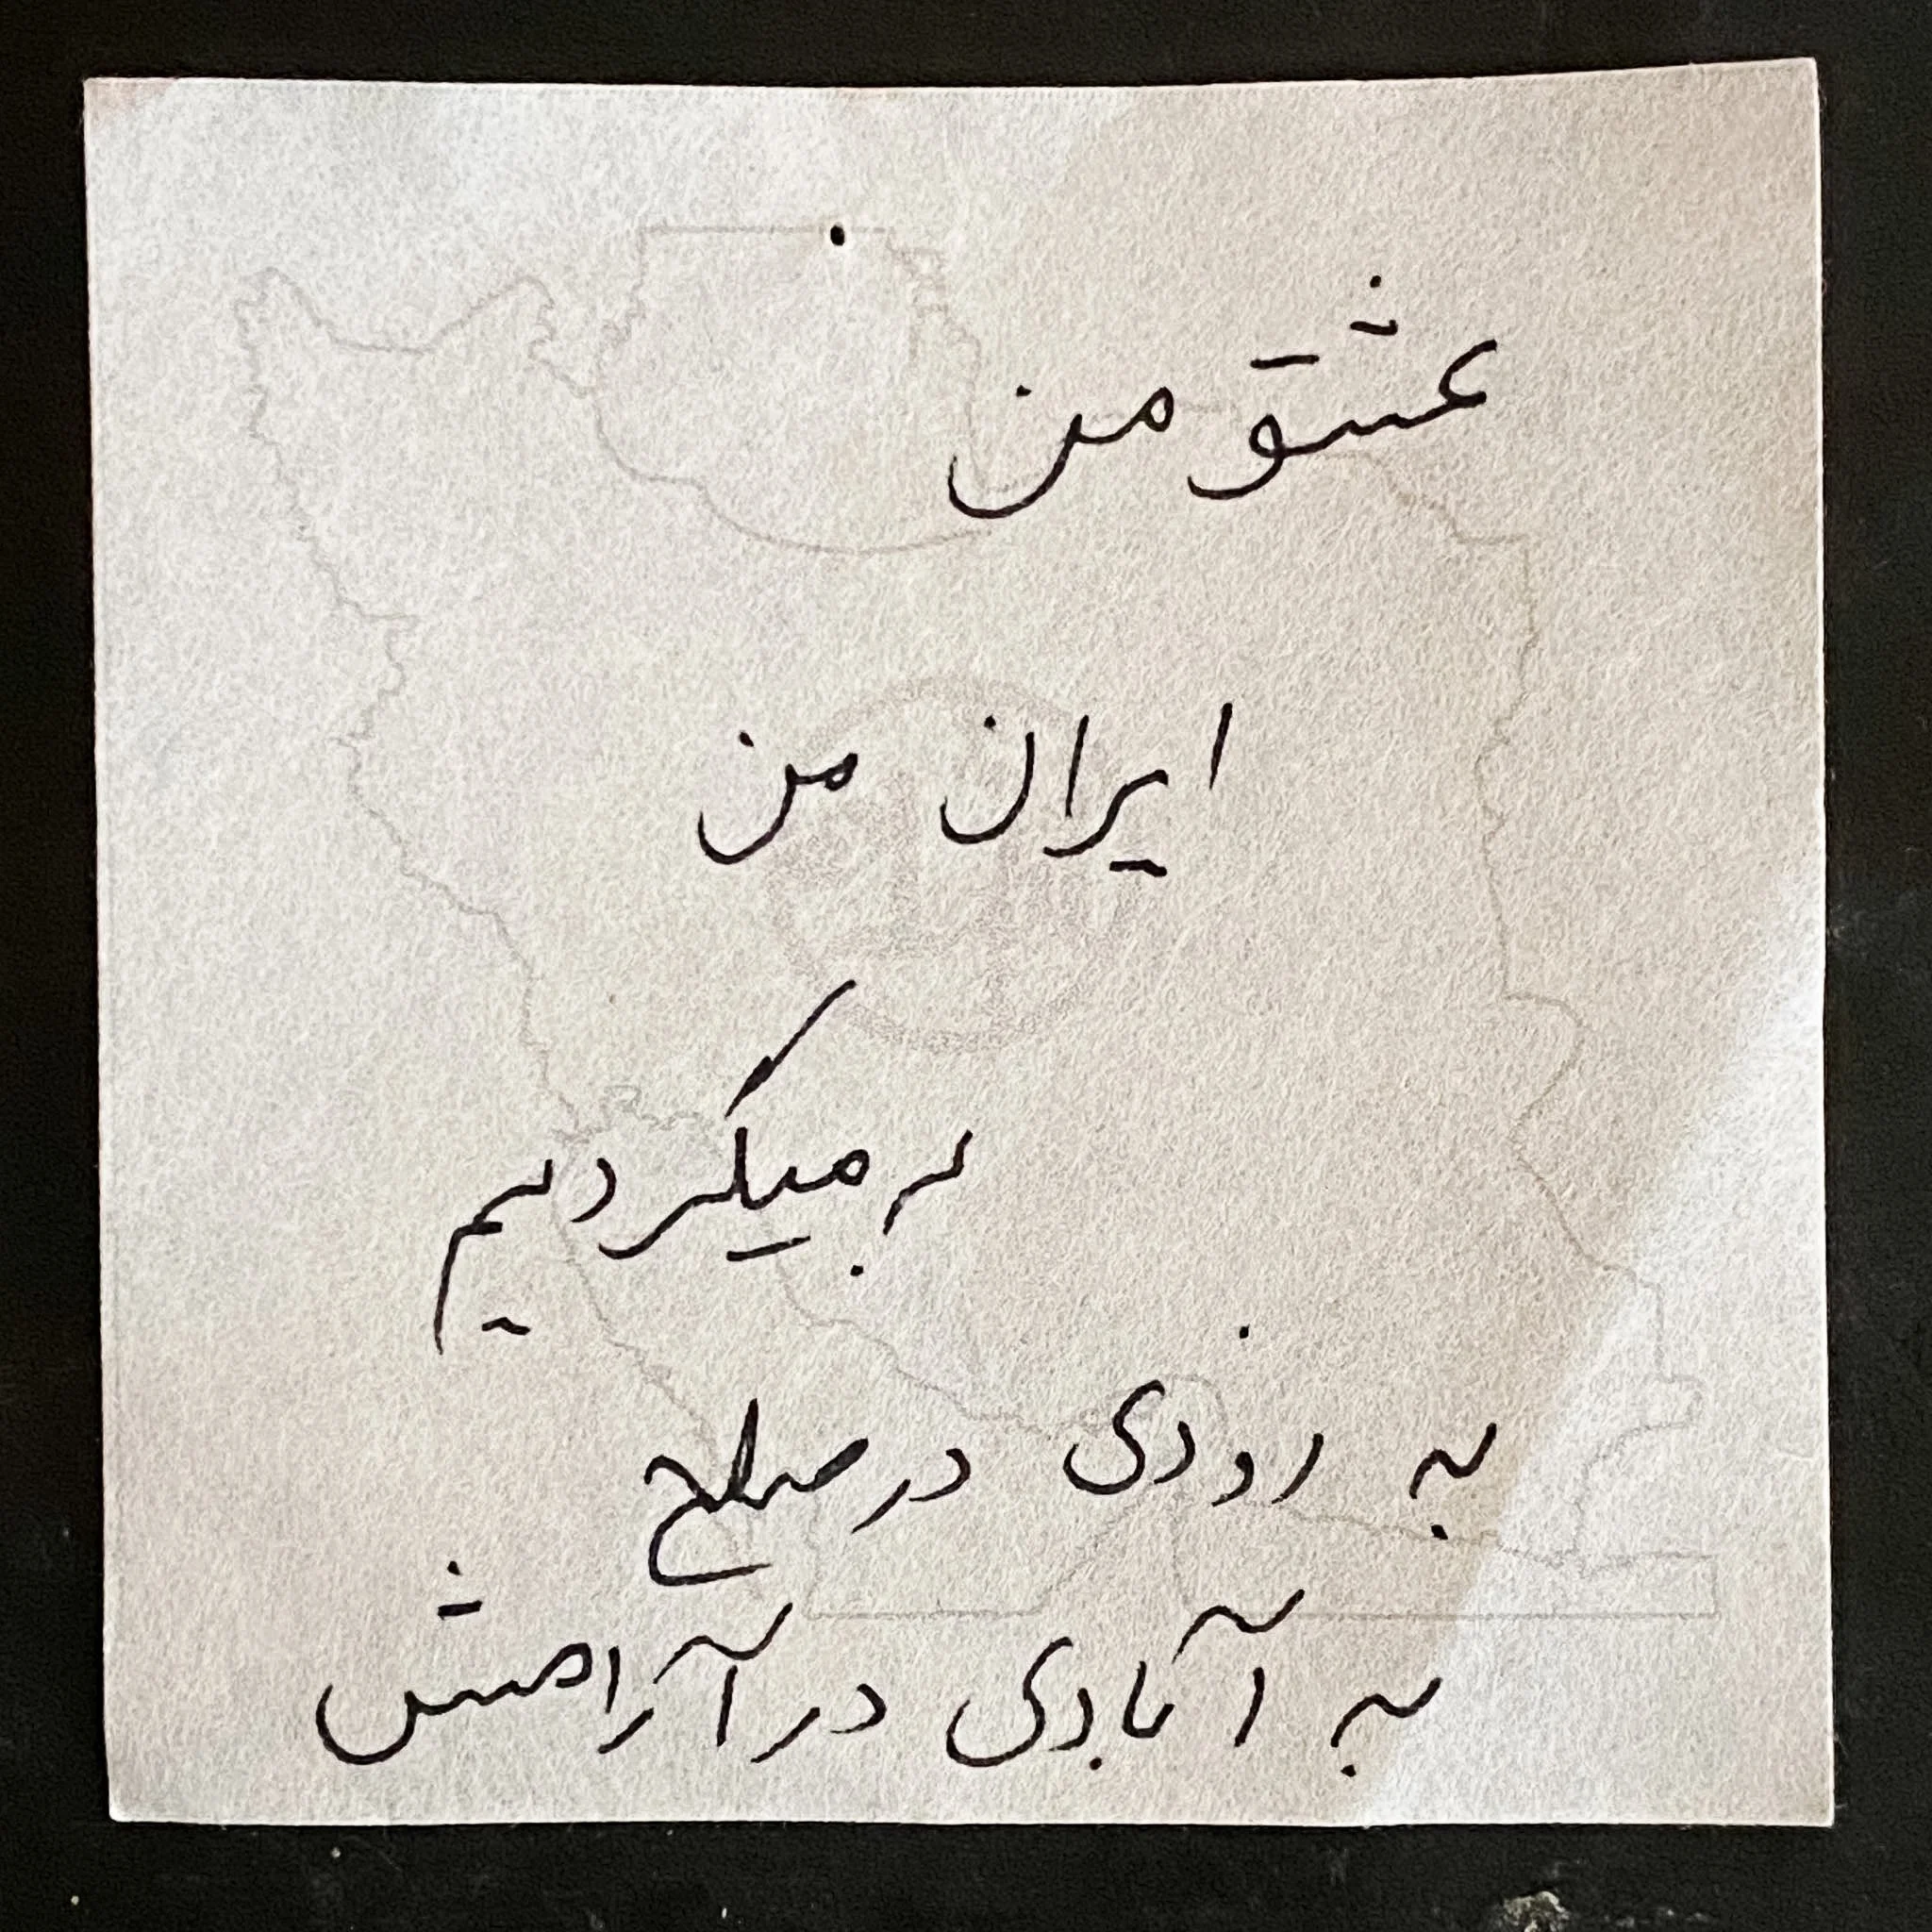 عشق من
ایران من
بر میگردیم
به روزی در صلح
به آبادی در آرامش